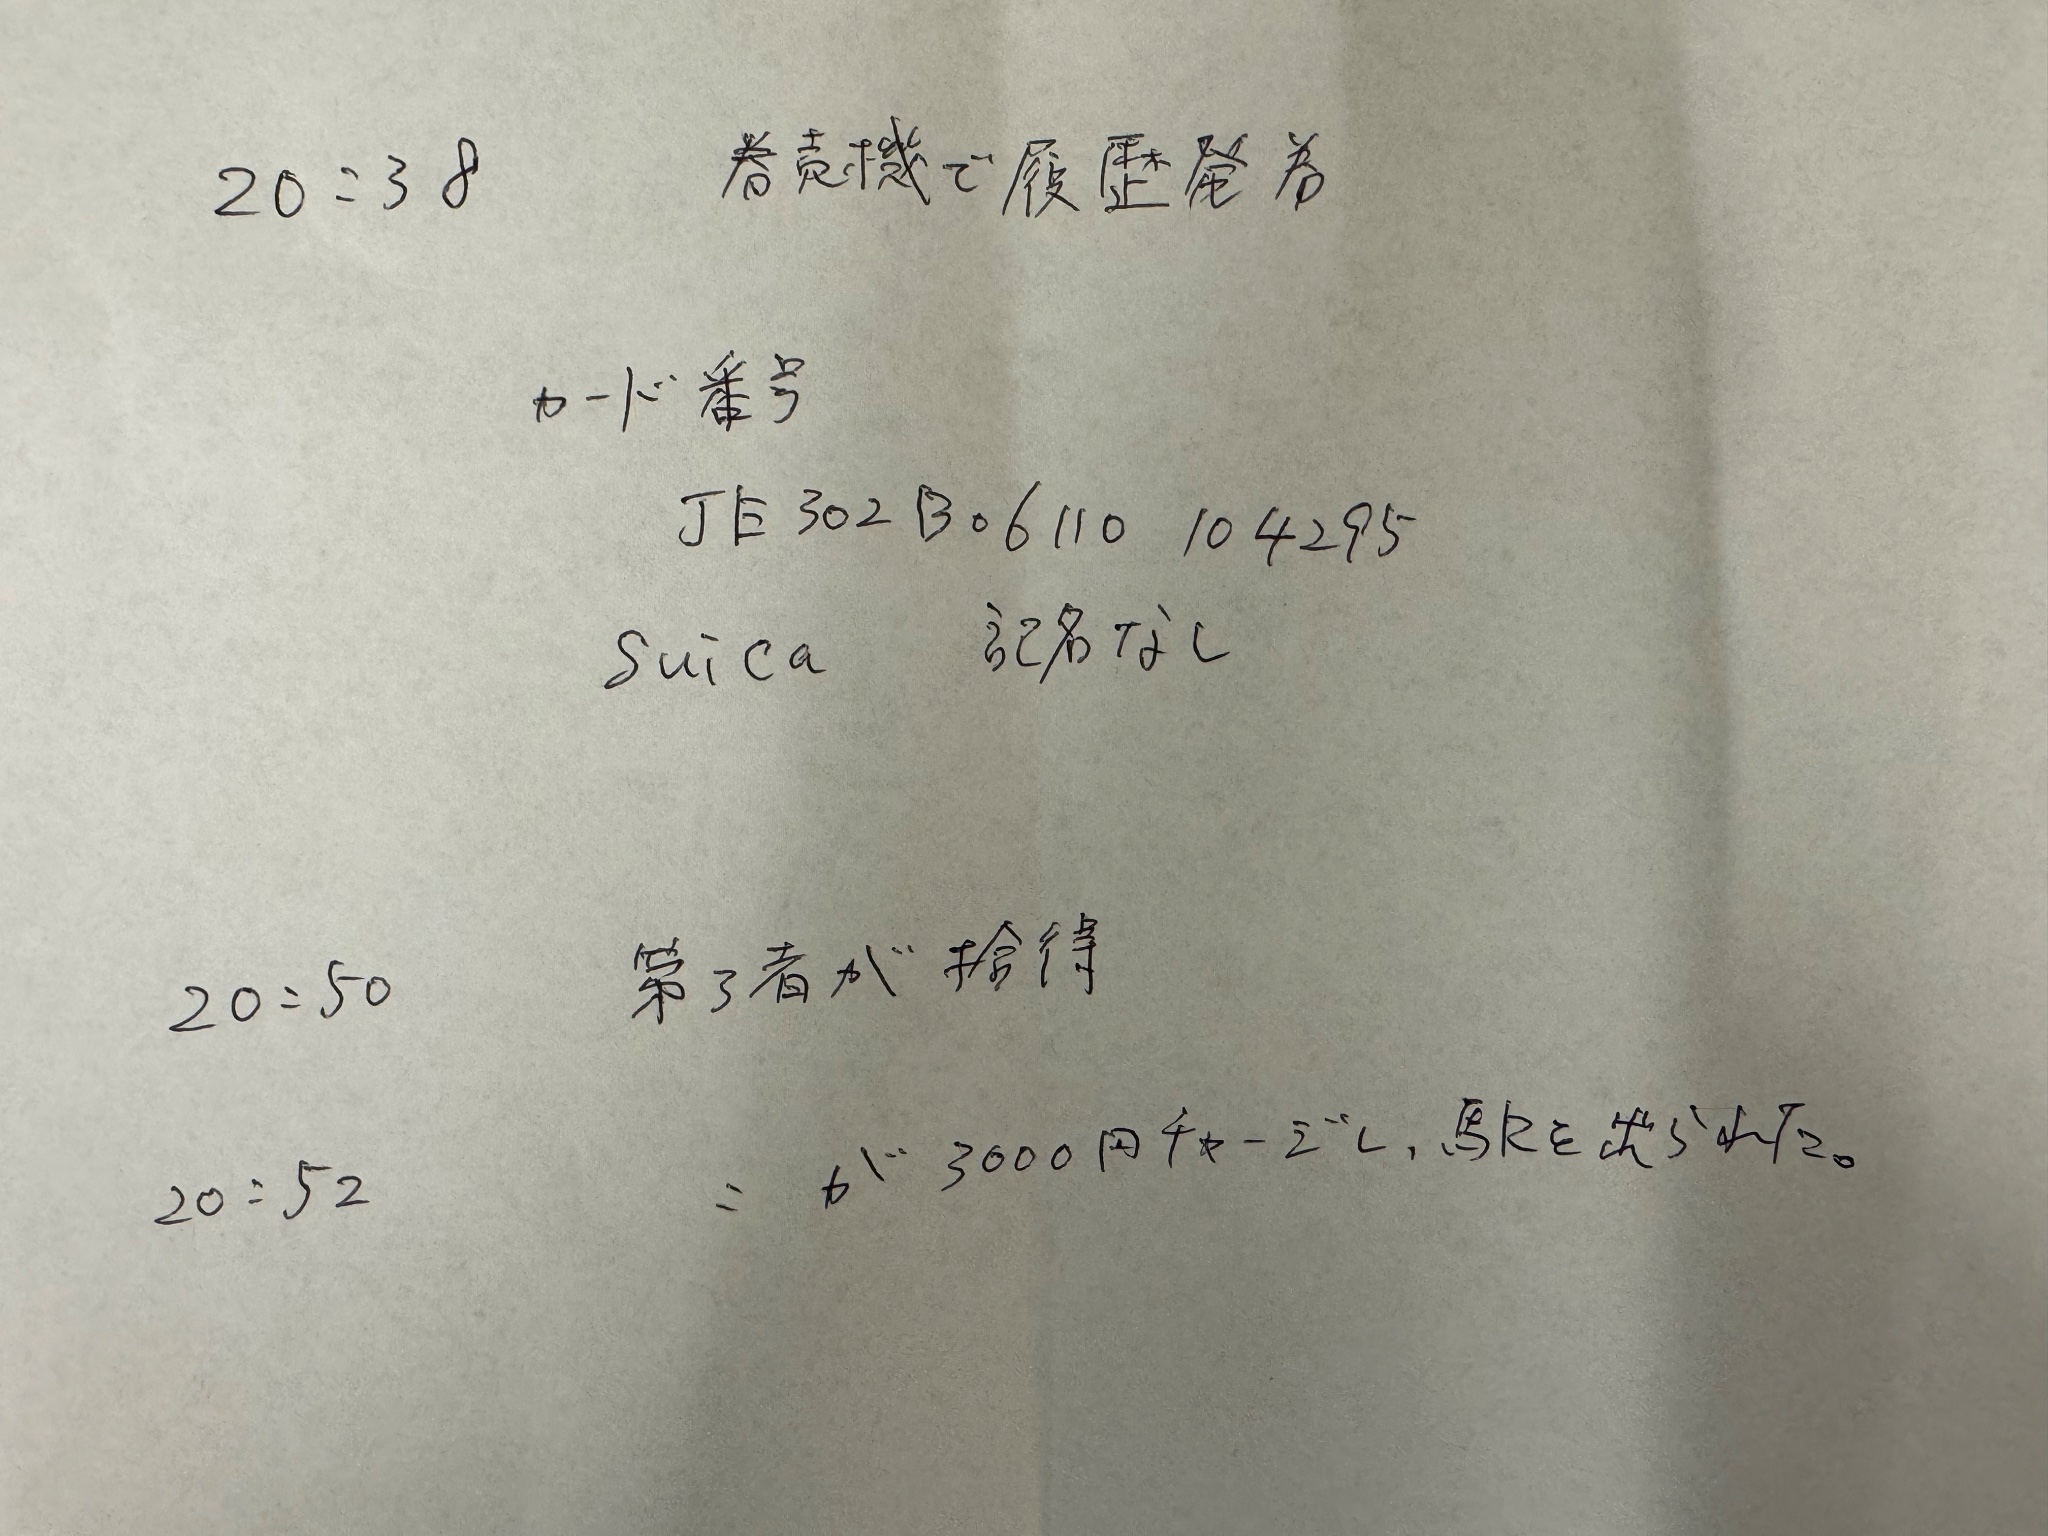 20:38 券売機で履歴発券
カード番号
JE302B06110 104295
Suica 記名なし
20:50 第3者が拾得
20:52 〃 が3000円チャージし、駅を出られた。